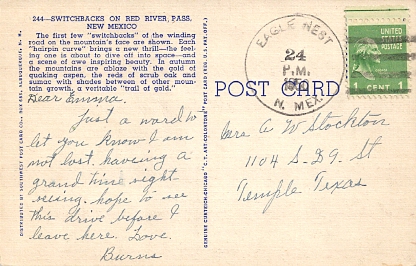 244—SWITCHBACKS ON RED RIVER PASS,
NEW MEXICO
The first few "switchbacks" of the winding
road on the mountain's face are shown. Each
"hairpin curve" brings a new thrill—the feel-
ing one is about to dive off into space—and
a scene of awe inspiring beauty. In autumn
the mountains are ablaze with the gold of
quaking aspen, the reds of scrub oak and
sumac with shades between of other moun-
tain growth, a veritable "trail of gold."
Dear Emma.
Just a word to
let you know I am
not lost. having a
grand time sight
seeing. hope to see
this drive before I
leave here. Love.
Burns
DISTRIBUTED BY SOUTHWEST POST CARD CO., ALBUQUERQUE, N. M.
GENUINE CURTEICH-CHICAGO "C.T. ART-COLORTONE" POST CARD (REG. U.S. PAT. OFF.)
POST CARD
EAGLE NEST
24
P.M.
N. MEX.
UNITED
STATES
POSTAGE
1 CENT 1
A W Stockton
1104 S-D9. St
Temple Texas